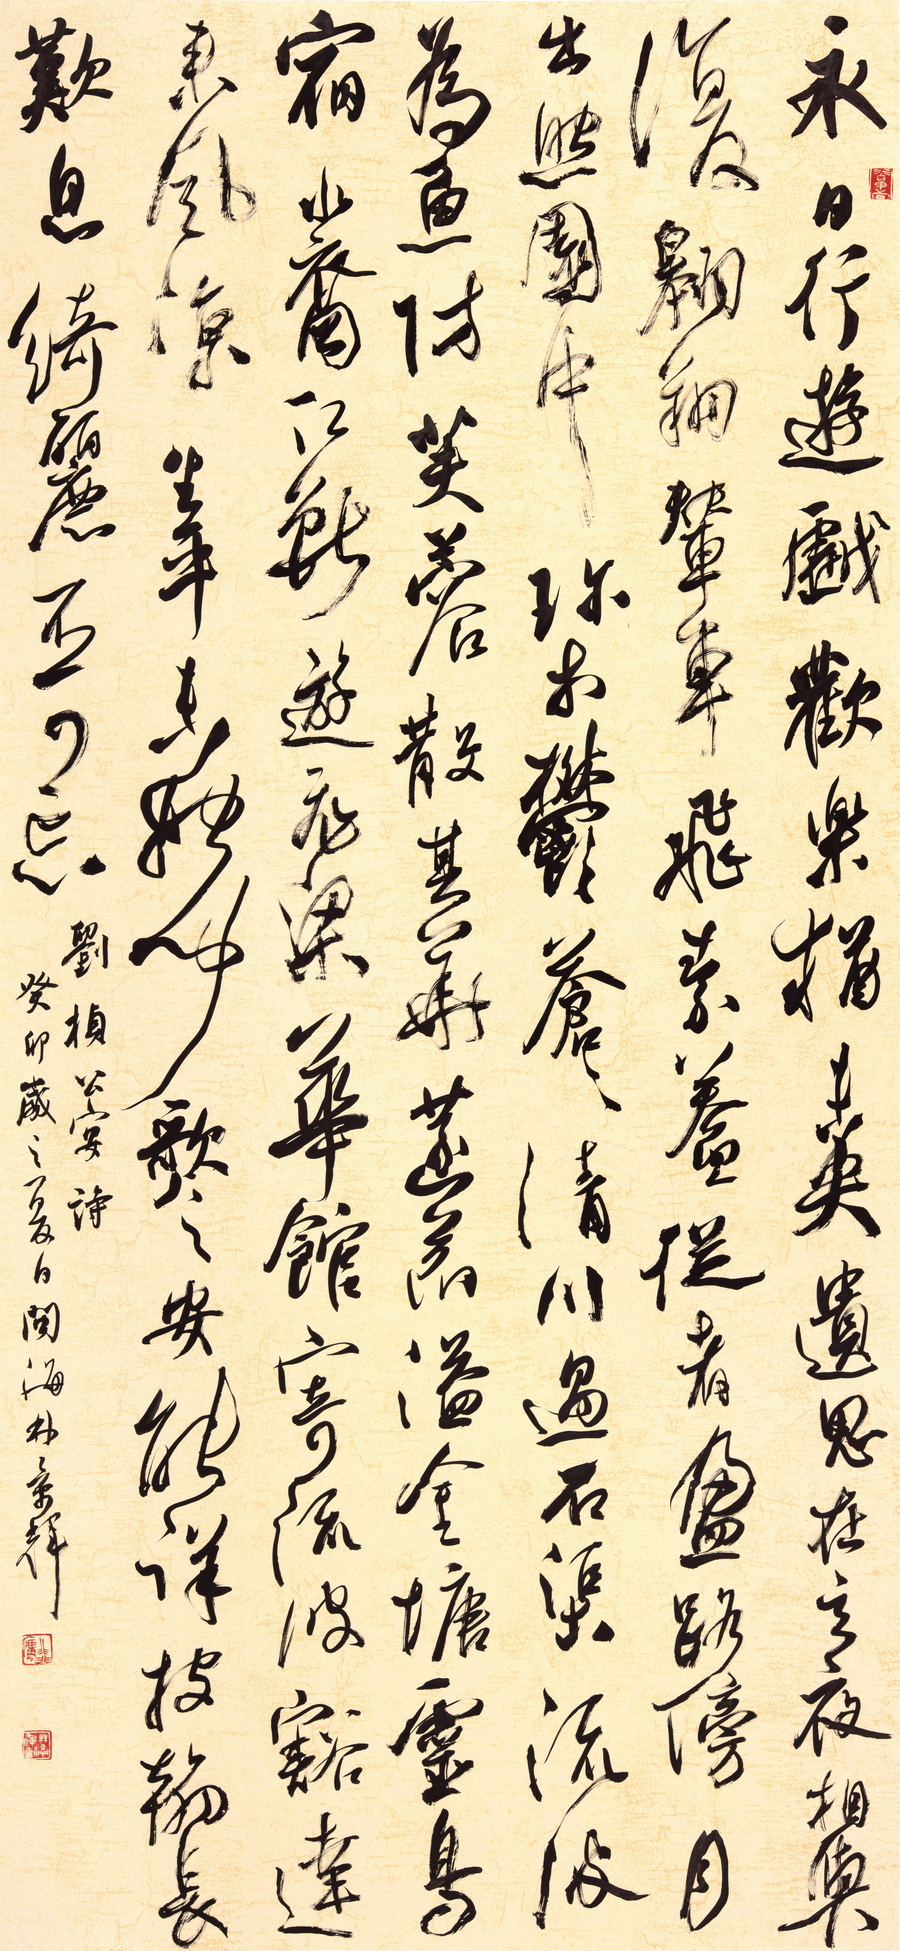 永日行遊戲歡樂猶未央遺思在玄夜相與
復翱翔輦車飛素蓋從者盈路傍月
出照園中珍木鬱蒼々清川過石渠流波
為魚防芙蓉散其華菡萏溢金塘靈鳥
宿水裔仁獸遊飛梁華館寄流波豁達
來風涼生平未始聞歌之安能詳投翰長
歎息綺麗不可忘
劉楨公宴詩
癸卯歲之夏日閩海林景輝